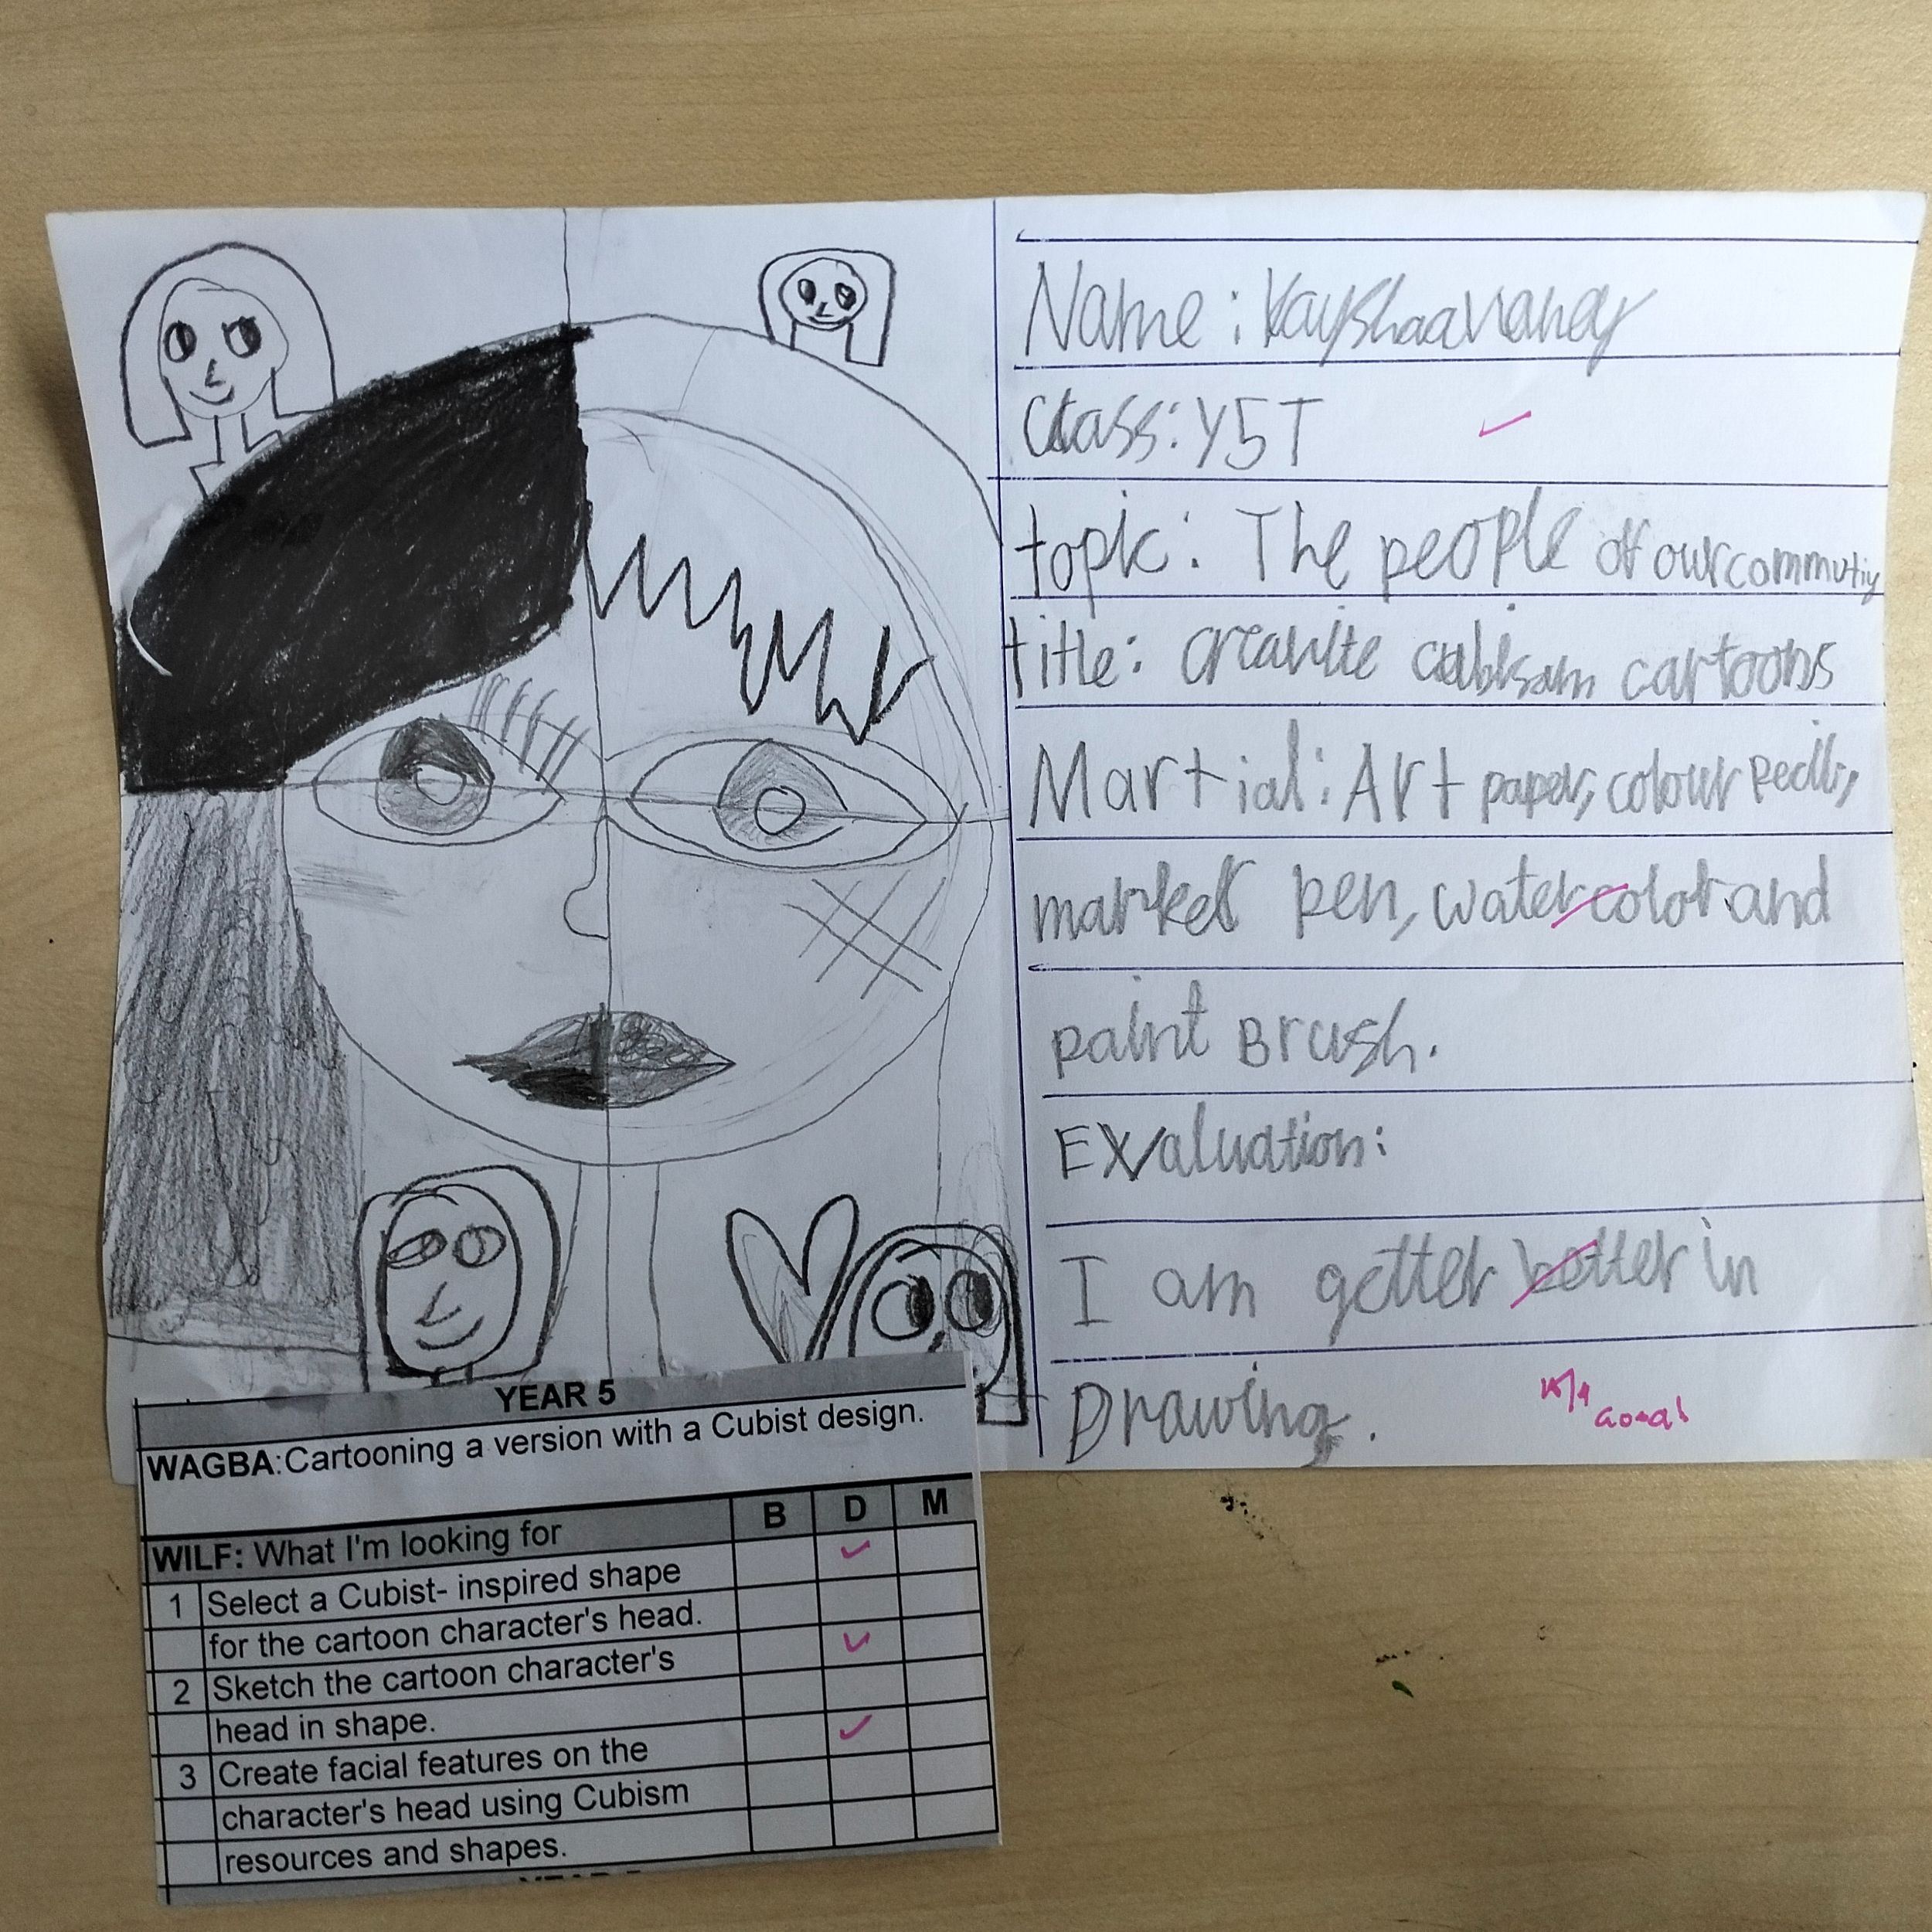 Name: Kayshaavanay
Class: Y5T
topic: The people of our commutiy
title: creanite cublsam cartoons
Martial: Art paper, colour
marker pen, watercolor and
paint Brush.
EXvaluation:
I am getter better in
Drawing.
Good!
YEAR 5
WAGBA:Cartooning a version with a Cubist design.
WILF: What I'm looking for B D M
1 Select a Cubist- inspired shape
for the cartoon character's head.
2 Sketch the cartoon character's
head in shape.
3 Create facial features on the
character's head using Cubism
resources and shapes.